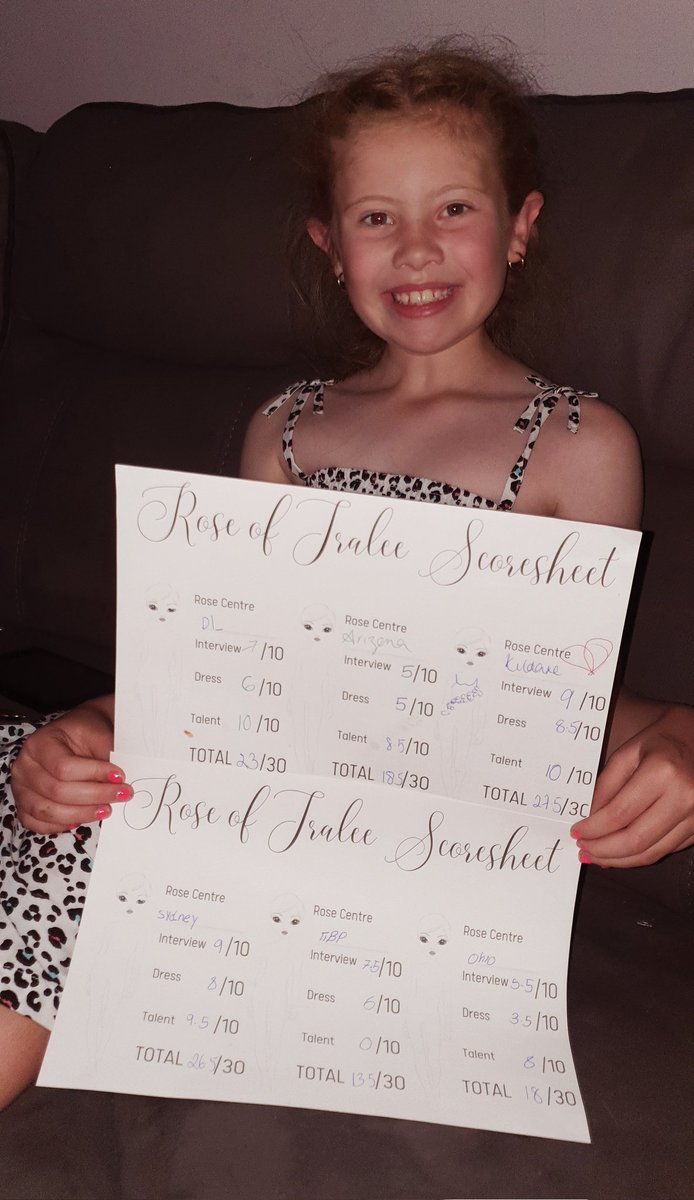 Rose of Tralee Scoresheet
Rose Centre
DL
Interview 7/10
Dress 6/10
Talent 10/10
TOTAL 23/30
Rose Centre
Arizona
Interview 5/10
Dress 5/10
Talent 8.5/10
TOTAL 18.5/30
Rose Centre
Kildare
Interview 9/10
Dress 8.5/10
Talent 10/10
TOTAL 27.5/30
Rose of Tralee Scoresheet
Rose Centre
Sydney
Interview 9/10
Dress 8/10
Talent 9.5/10
TOTAL 26.5/30
Rose Centre
Interview 7.5/10
Dress 6/10
Talent 0/10
TOTAL 13.5/30
Rose Centre
Ohio
Interview 5.5/10
Dress 3.5/10
Talent 8/10
TOTAL 18/30